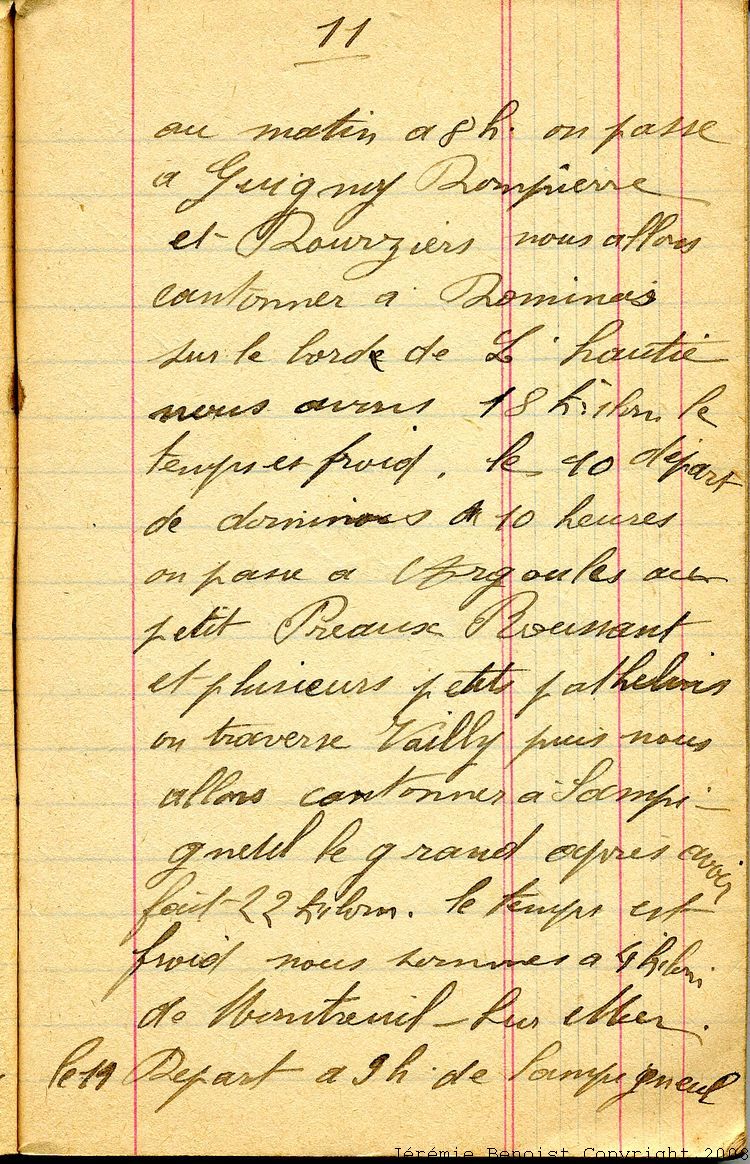 11
au matin a 8 h. on passe
a Guigny Dompierre
et Rouvziers nous allons
cantonner a Dominois
sur le borde de L'hautie
nous avons 18 kilom le
temps es froid. le 10 départ
de dominois a 10 heures
on passe a Argoules au
petit Preaux Roussant
et plusieurs petits pathelins
on traverse Vailly puis nous
allons cantonner a Sampi-
gneul le grand apres avoir
fait 22 kilom. le temps est
froid nous sommes a 4 kilom
de Montreuil-sur Mer.
le 11 Depart a 9 h. de Sampigneul
Jérémie Benoist Copyright